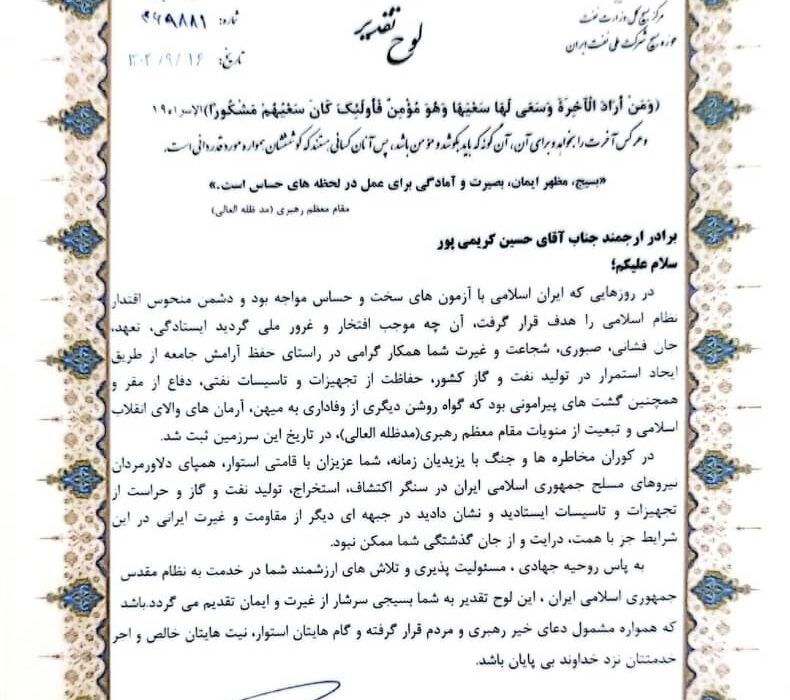 مرکز بسیج کل وزارت نفت
حوزه بسیج شرکت ملی نفت ایران
لوح تقدیر
شماره: ۴۶۹۸۸۱
تاریخ: ۱۴۰۴/۹/۱۶
(وَمَنْ أَرَادَ الْآخِرَةَ وَسَعَى لَهَا سَعْيَهَا وَهُوَ مُؤْمِنٌ فَأُولَئِكَ كَانَ سَعْيُهُمْ مَشْكُورًا)الاسراء۱۹
و هر کس آخرت را بخواهد و برای آن، آن گونه که باید بکوشد و مؤمن باشد، پس آنان کسانی هستند که کوششان همواره مورد قدردانی است.
«بسیج، مظهر ایمان، بصیرت و آمادگی برای عمل در لحظه های حساس است.»
مقام معظم رهبری (مد ظله العالی)
برادر ارجمند جناب آقای حسین کریمی پور
سلام علیکم؛
در روزهایی که ایران اسلامی با آزمون های سخت و حساس مواجه بود و دشمن منحوس اقتدار
نظام اسلامی را هدف قرار گرفت، آن چه موجب افتخار و غرور ملی گردید ایستادگی، تعهد،
جان فشانی، صبوری، شجاعت و غیرت شما همکار گرامی در راستای حفظ آرامش جامعه از طریق
ایجاد استمرار در تولید نفت و گاز کشور، حفاظت از تجهیزات و تاسیسات نفتی، دفاع از مقر و
همچنین گشت های پیرامونی بود که گواه روشن دیگری از وفاداری به میهن، آرمان های والای انقلاب
اسلامی و تبعیت از منویات مقام معظم رهبری(مدظله العالی)، در تاریخ این سرزمین ثبت شد.
در کوران مخاطره ها و جنگ با یزیدیان زمانه، شما عزیزان با قامتی استوار، همپای دلاورمردان
نیروهای مسلح جمهوری اسلامی ایران در سنگر اکتشاف، استخراج، تولید نفت و گاز و حراست از
تجهیزات و تاسیسات ایستادید و نشان دادید در جبهه ای دیگر از مقاومت و غیرت ایرانی در این
شرایط جز با همت، درایت و از جان گذشتگی شما ممکن نبود.
به پاس روحیه جهادی ، مسئولیت پذیری و تلاش های ارزشمند شما در خدمت به نظام مقدس
جمهوری اسلامی ایران ، این لوح تقدیر به شما بسیجی سرشار از غیرت و ایمان تقدیم می گردد.باشد
که همواره مشمول دعای خیر رهبری و مردم قرار گرفته و گام هایتان استوار، نیت هایتان خالص و اجر
خدمتتان نزد خداوند بی پایان باشد.